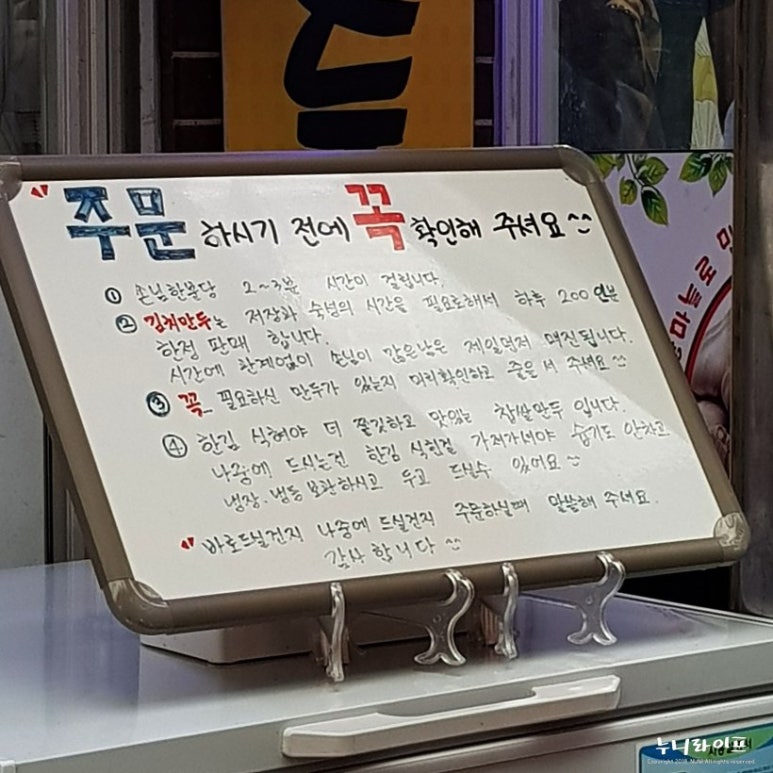 주문하시기 전에 꼭 확인해 주셔요^^
① 손님한분당 2~3분 시간이 걸립니다.
② 김치만두는 저장과 숙성의 시간을 필요로해서 하루 200인분
한정 판매 합니다.
시간에 한계없이 손님이 많은날은 제일먼저 매진됩니다.
③ 꼭 필요하신 만두가 있는지 미리확인하고 줄을 서 주세요^^
④ 한김 식혀야 더 쫄깃하고 맛있는 찹쌀만두 입니다.
나중에 드시는건 한김 식힌걸 가져가셔야 습기도 안차고
냉장·냉동보관하시고 두고 드실수 있어요^^
바로드실건지 나중에 드실건지 주문하실때 말씀해 주셔요.
감사합니다^^
누니라이프